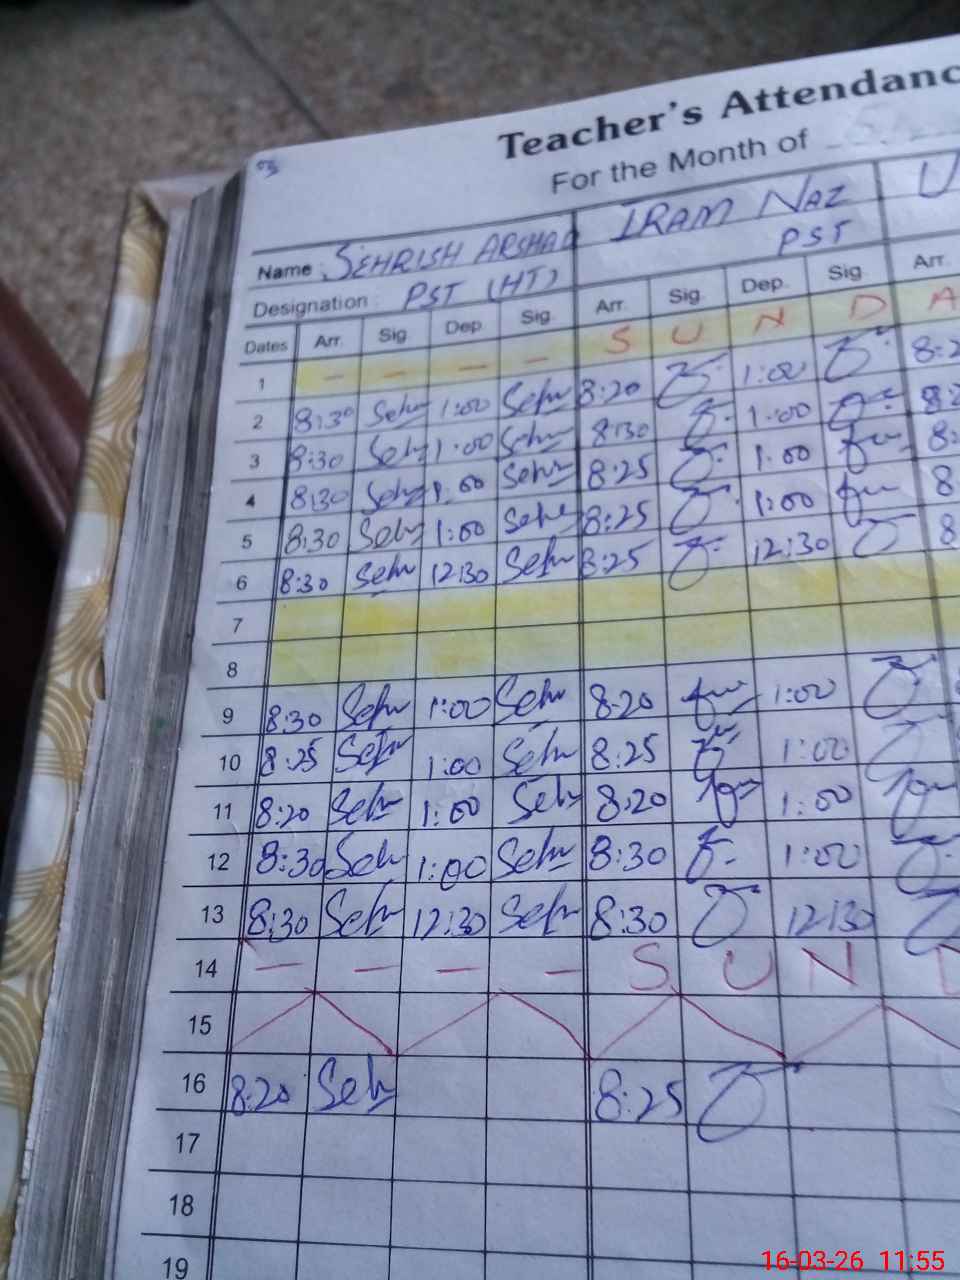 03
Teacher's Attendanc
For the Month of
Name: SEHRISH ARSHAD IRAM NAZ U
Designation: PST (HT) PST
Dates Arr. Sig. Dep. Sig. Arr. Sig. Dep. Sig. Arr.
1 - - - - S U N D A
2 8:30 Sehr 1:00 Sehr 8:20 1:00 8:2
3 8:30 Sehr 1:00 Sehr 8:30 1:00 8:2
4 8:30 Sehr 1:00 Sehr 8:25 1:00 8:
5 8:30 Sehr 1:00 Sehr 8:25 1:00 8
6 8:30 Sehr 12:30 Sehr 8:25 12:30 8
7
8
9 8:30 Sehr 1:00 Sehr 8:20 1:00
10 8:25 Sehr 1:00 Sehr 8:25 1:00
11 8:20 Sehr 1:00 Sehr 8:20 1:00
12 8:30 Sehr 1:00 Sehr 8:30 1:00
13 8:30 Sehr 12:30 Sehr 8:30 12:30
14 - - - - S U N D
15
16 8:20 Sehr 8:25
17
18
19
16-03-26 11:55